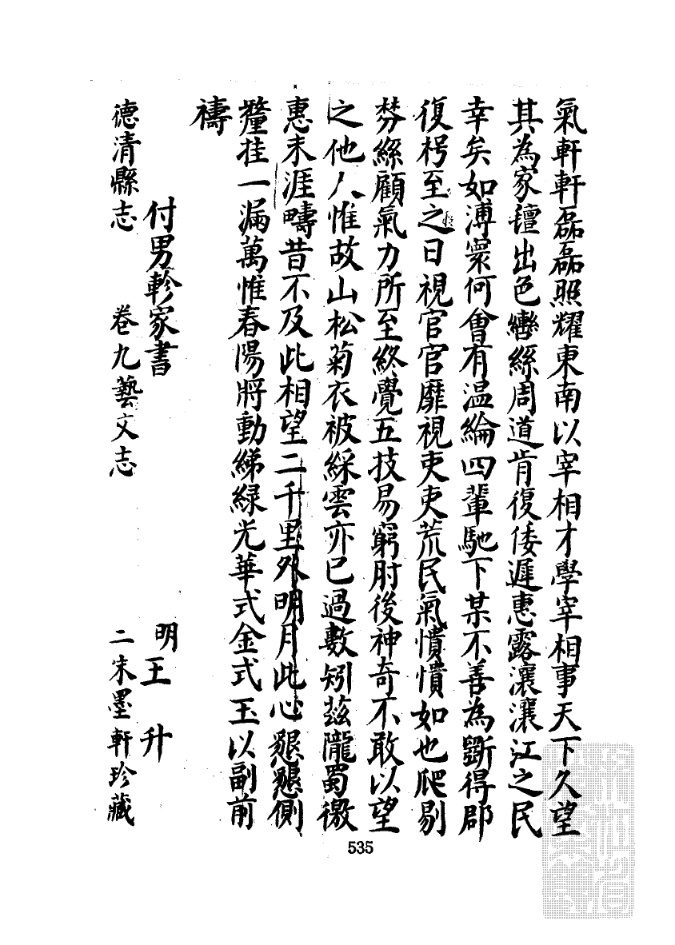 氣軒軒磊磊照耀東南以宰相才學宰相事天下久望
其為家㯹出色轡絲周道肯復倭遲惠露瀼瀼江之民
幸矣如溥寰何會有温綸四輩馳下某不善為斲得郡
復枵至之日視官官靡視吏吏荒民氣憒憒如也爬剔
棼絲顧氣力所至終覺五技易窮肘後神奇不敢以望
之他人惟故山松菊衣被綵雲亦已過數矧茲隴蜀徼
惠末涯疇昔不及此相望二千里外明月此心懇懇側
釐挂一漏萬惟春陽將動綈緑光華式金式玉以副前
禱
付男軫家書 明王升
德清縣志 卷九藝文志 二末墨軒珍藏
535